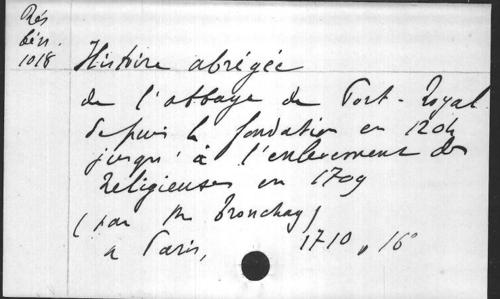 Rés
bév.
1018
Histoire abrégée
de l'abbaye de Port-Royal
depuis la fondation en 1204
jusqu'à l'enlèvement des
religieuses en 1709
(par M Tronchay)
a Paris, 1710, 16°